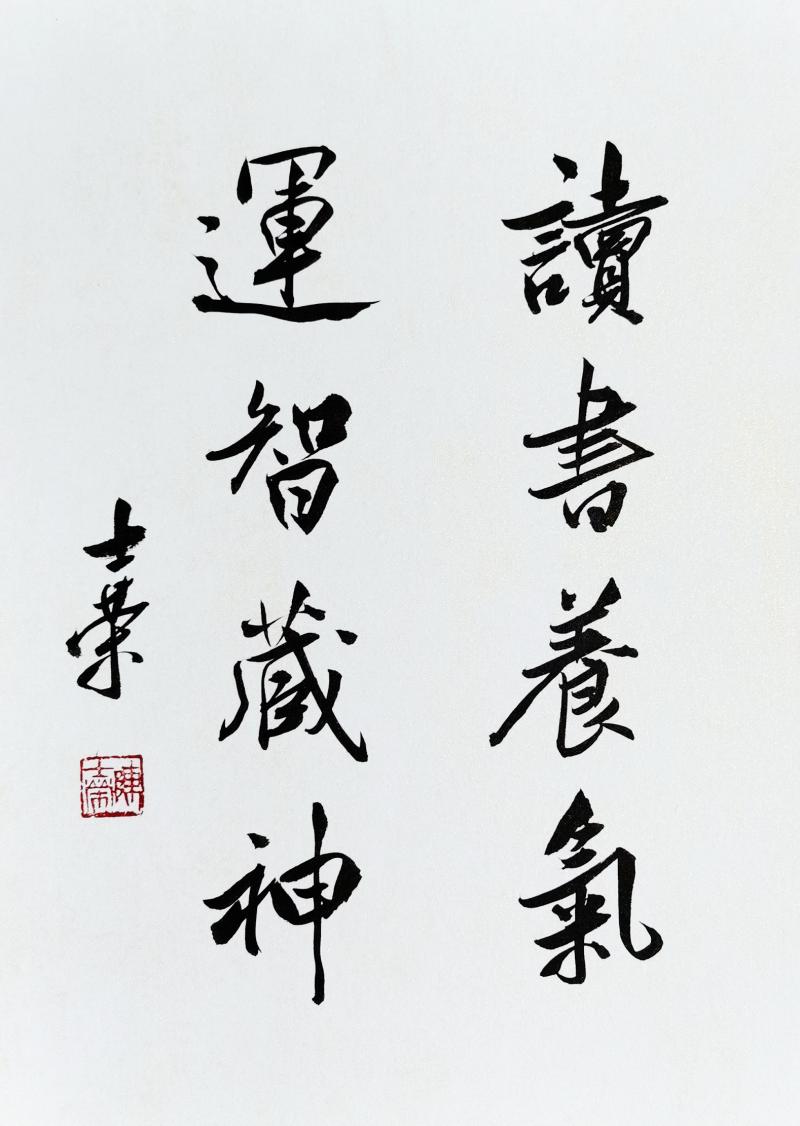 讀書養氣
運智藏神
士榮
陳士榮